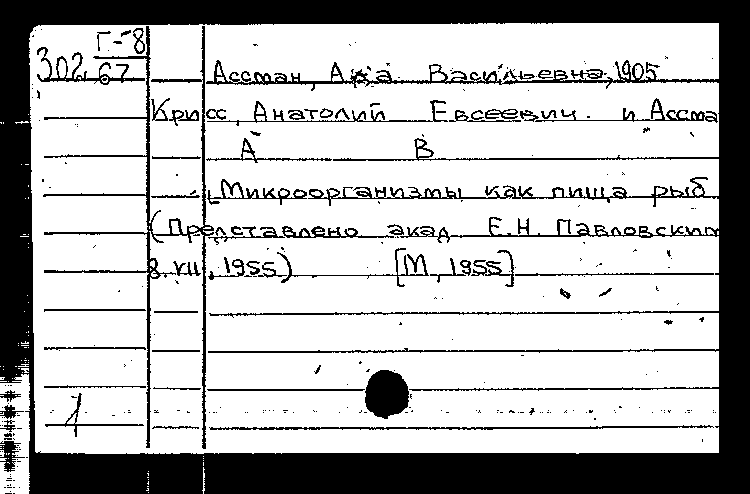 Г-8
302 67
Ассман, Ада Васильевна, 1905
Крисс, Анатолий Евсеевич. и Ассма
А В
Микроорганизмы как пища рыб
(Представлено акад. Е.Н. Павловским
8.VII.1955) [М, 1955]
1